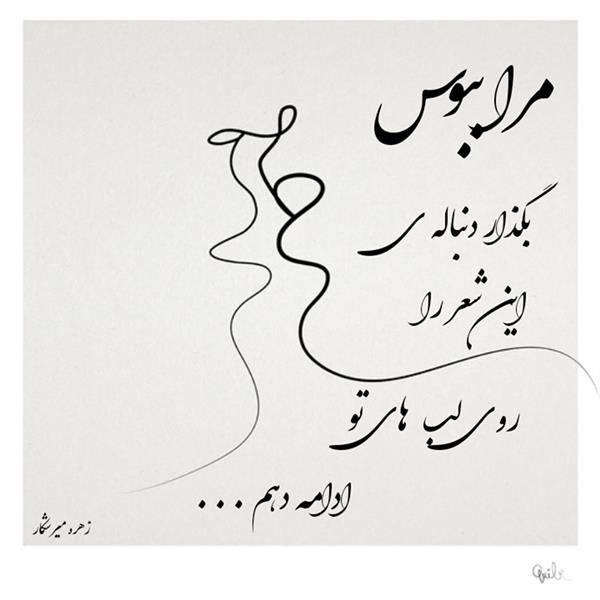 مرا ببوس
بگذار دنباله ی
این شعر را
روی لب های تو
ادامه دهم ...
زهره میرشکار